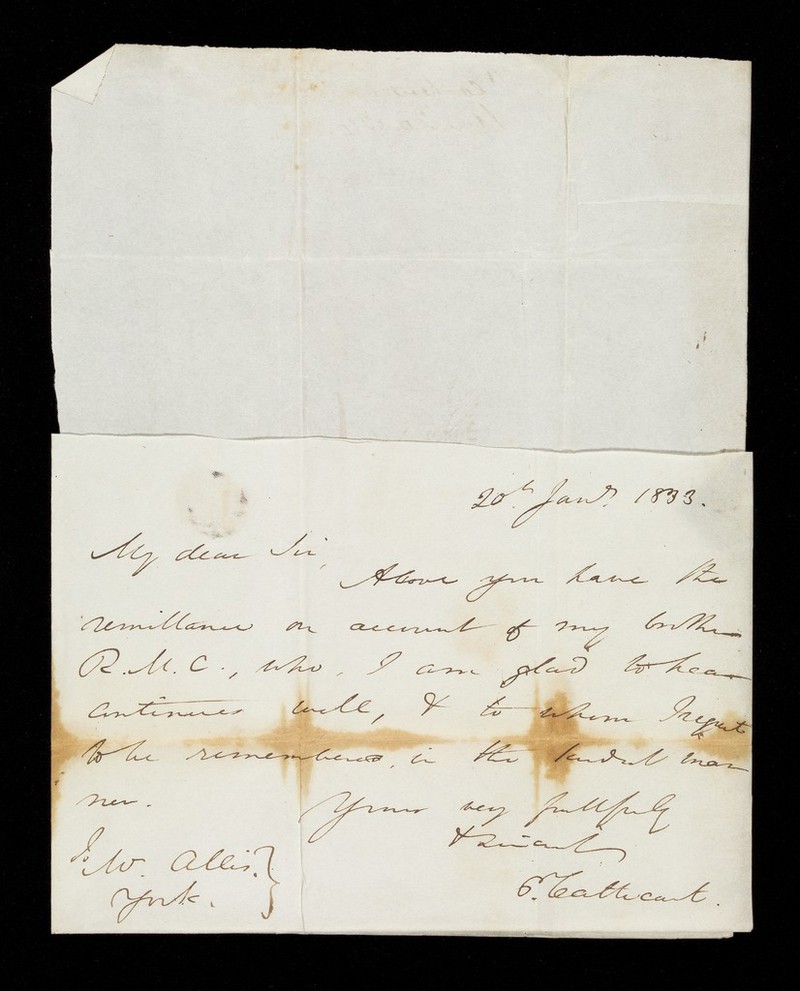 20th Jany. 1833.
My dear Sir,
Above you have the
remittance on account of my brother
R.M.C., who, I am glad to hear
continues well, & to whom I request
to be remembered, in the kindest man
ner.
Yours very faithfully
& sincerely
Cathcart.
To
W. Allis.
York.